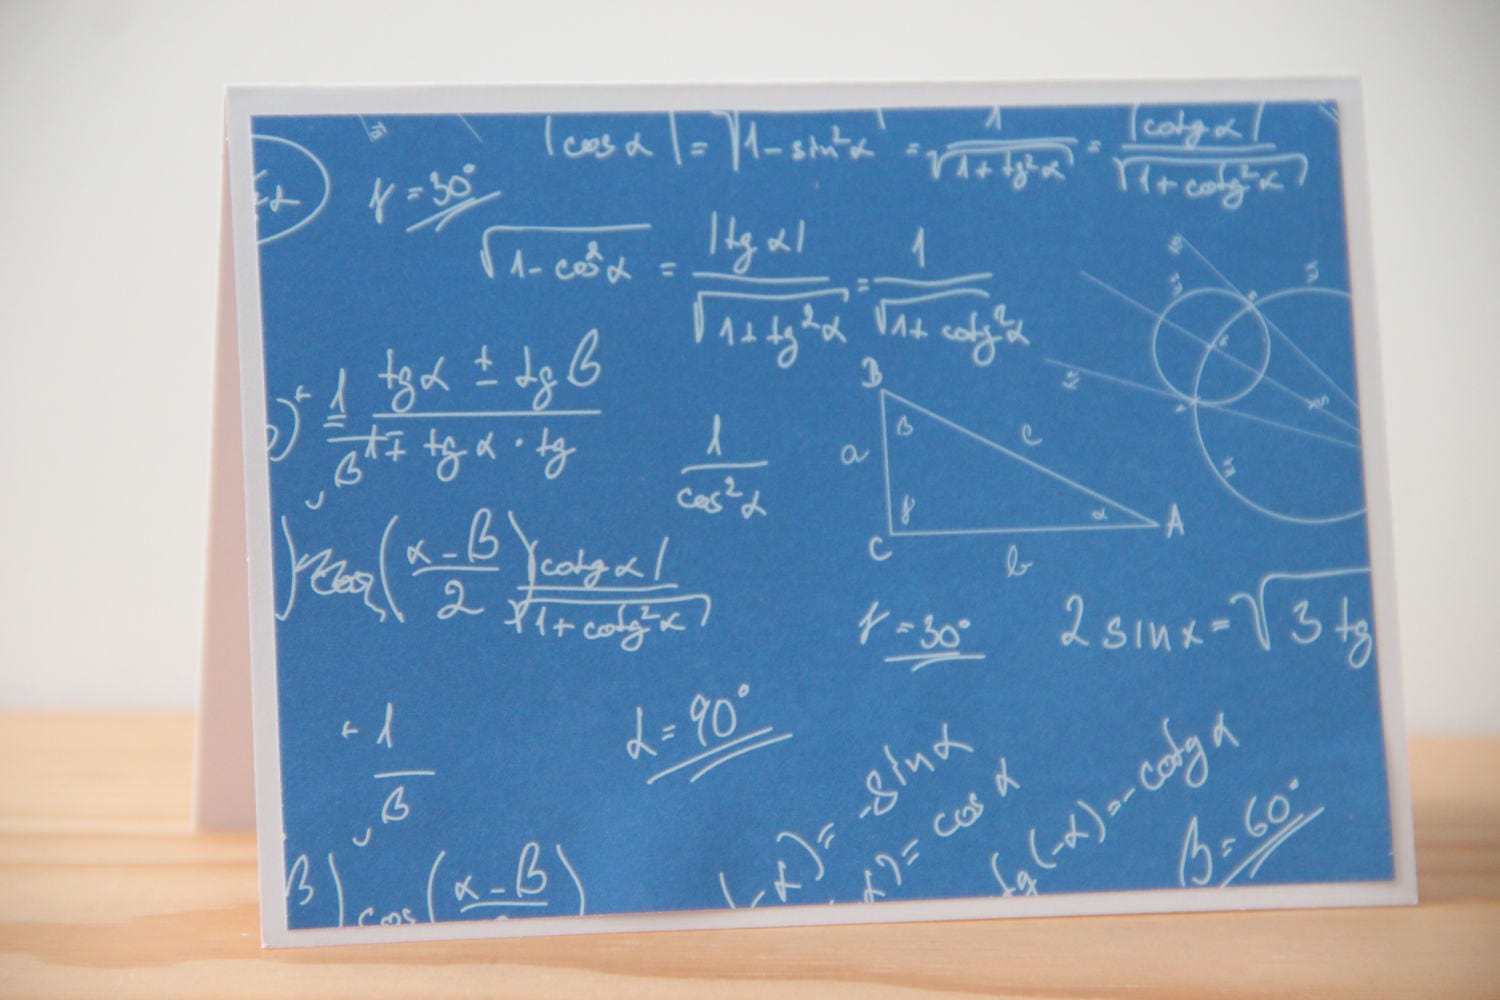 |cos α| = √1 - sin²α = 1/√1 + tg²α = |cotg α|/√1 + cotg²α
γ = 30°
√1 - cos²α = |tg α|/√1 + tg²α = 1/√1 + cotg²α
tg α ± tg β
1 ∓ tg α · tg
1/β
1/cos²α
B
β
a
c
γ
α
A
C
b
(α - β)/2
|cotg α|/√1 + cotg²α
γ = 30°
2 sin x = √3 tg
1/β
α = 90°
(-α) = -sin α
α) = cos α
tg(-α) = -cotg α
β = 60°
β) cos (α - β)